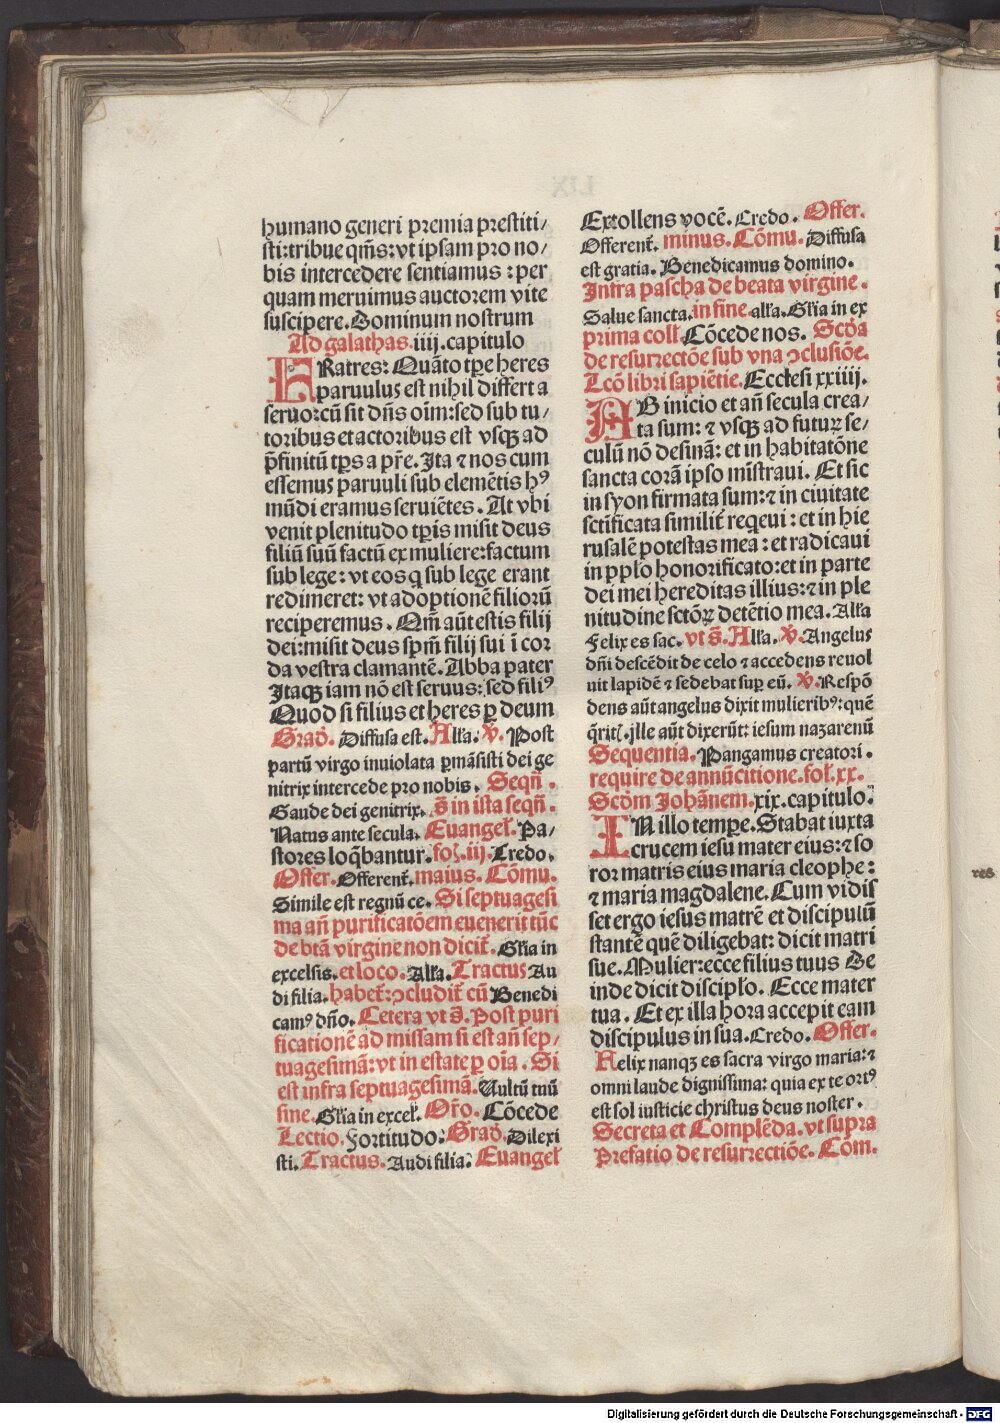 humano generi premia prestiti/
sti: tribue qm̃s: vt ipsam pro no/
bis intercedere sentiamus : per
quam meruimus auctorem vite
suscipere. Dominum nostrum
Ad galathas. iiij. capitulo
FRatres: Quãto tꝑe heres
paruulus est nihil differt a
seruo: cũ sit dñs oĩm: sed sub tu/
toribus et actoribus est vsqꝫ ad
p̃finitũ tꝑs a pr̃e. Ita ⁊ nos cum
essemus paruuli sub elemẽtis hꝰ
mũdi eramus seruiẽtes. At vbi
venit plenitudo tꝑis misit deus
filiũ suũ factũ ex muliere: factum
sub lege: vt eos q̃ sub lege erant
redimeret: vt adoptionẽ filiorũ
reciperemus. Qm̃ aũt estis filij
dei: misit deus spm̃ filij sui ĩ cor
da vestra clamantẽ. Abba pater
Itaqꝫ iam nõ est seruus: sed filiꝰ
Quod si filius et heres ꝑ deum
Grad̃. Diffusa est. Alľa. v̾. Post
partũ virgo inuiolata ꝑmãsisti dei ge
nitrix intercede pro nobis. Seqñ.
Gaude dei genitrix. s̃ in ista seqñ.
Natus ante secula. Euangeľ. Pa/
stores loq̃bantur. foľ. iij. Credo.
Offer. Offerent̃. maius. Cõmu.
Simile est regnũ ce. Si septuagesi
ma añ purificatõem euenerit tũc
de btã virgine non dicit̃. Gľia in
excelsis. et loco. Alľa. Tractus Au
di filia. habet̃: ↄcludit̃ cũ Benedi
camꝰ dño. Cetera vt s̃. Post puri
ficationẽ ad missam si est añ sep/
tuagesimã: vt in estate ꝑ oĩa. Si
est infra septuagesimã. Vultũ tuũ
sine. Gľia in exceľ. Or̃o. Cõcede
Lectio. Fortitudo: Grad̃. Dilexi
sti. Tractus. Audi filia: Euangeľ
Extollens vocẽ. Credo. Offer.
Offerent̃. minus. Cõmu. Diffusa
est gratia. Benedicamus domino.
Infra pascha de beata virgine.
Salue sancta. in fine alľa. Gľia in ex
prima coll̃ Cõcede nos. Scd̃a
de resurrectõe sub vna ↄclusiõe.
Lcõ libri sapiẽtie. Ecclesi xxiiij.
AB inicio et añ secula crea/
ta sum: ⁊ vsqꝫ ad futurꝝ se/
culũ nõ desinã: et in habitatõne
sancta corã ipso mĩstraui. Et sic
in syon firmata sum: ⁊ in ciuitate
sctificata similit̃ reqeui : et in hie
rusalẽ potestas mea : et radicaui
in pplo honorificato: et in parte
dei mei hereditas illius: ⁊ in ple
nitudine sctõꝝ detẽtio mea. Alľa
Felix es sac. vt s̃. Alľa. v̾. Angelus
dñi descẽdit de celo ⁊ accedens reuol
uit lapidẽ ⁊ sedebat suꝑ eũ. v̾. Respõ
dens aũt angelus dixit mulieribꝰ: quẽ
q̃rit̃. jlle aũt dixerũt: iesum nazarenũ
Sequentia. Pangamus creatori.
require de annũcitione. foľ. xx.
Scd̃m Johãnem. xix. capitulo:
IN illo temꝑe. Stabat iuxta
crucem iesu mater eius: ⁊ so
ror matris eius maria cleophe:
⁊ maria magdalene. Cum vidis
set ergo iesus matrẽ et discipulũ
stantẽ quẽ diligebat: dicit matri
sue. Mulier: ecce filius tuus De
inde dicit disciplo. Ecce mater
tua. Et ex illa hora accepit eam
discipulus in sua. Credo. Offer.
Felix nanqꝫ es sacra virgo maria: ⁊
omni laude dignissima: quia ex te ortꝰ
est sol iusticie christus deus noster.
Secreta et Complẽda. vt supra
Prefatio de resurrectiõe. Com.
res
Digitalisierung gefördert durch die Deutsche Forschungsgemeinschaft - DFG